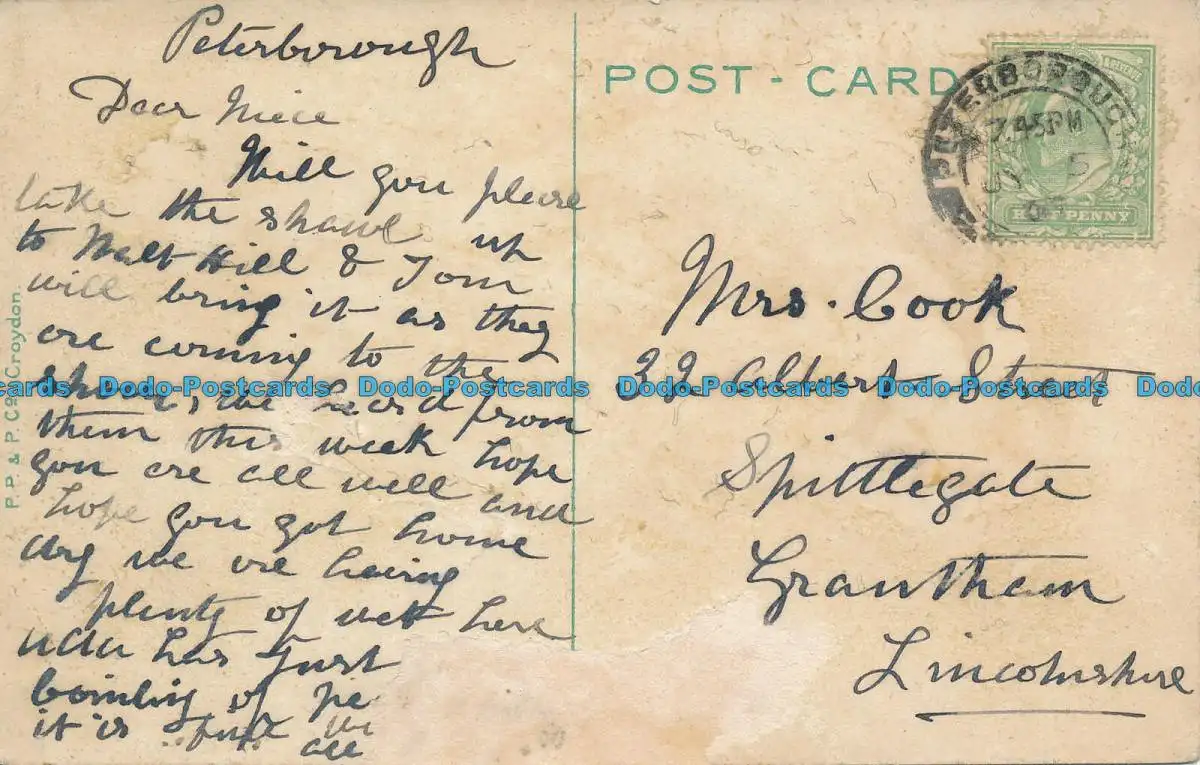 Peterborough
Dear Niece
Will you please
take the shawl up
to Walt Hill & Tom
will bring it as they
are coming to the
show, we heard from
them this week hope
you are all well and
hope you got home
dry we are having
plenty of wet here
has just
of
it is just
all
P.P. & P. Co Ltd Croydon.
POST-CARD
PETERBOROUGH
7.45PM
JY 5
HALFPENNY
Mrs. Cook
32 Albert Street
Spittlegate
Grantham
Lincolnshire
Dodo-Postcards Dodo-Postcards Dodo-Postcards Dodo-Postcards